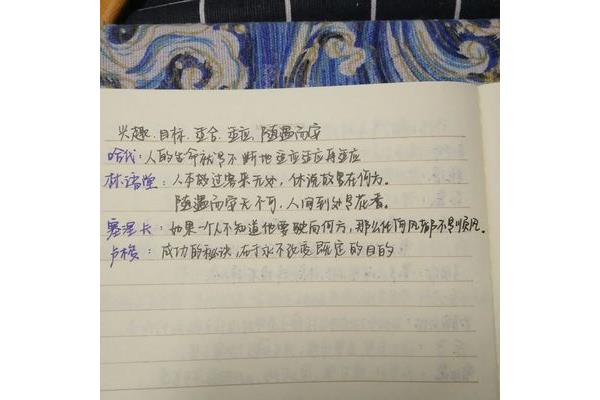 兴趣、目标、适合、适应、随遇而安
哈代：人的生命就是不断地适应适应再适应
林语堂：人本过客来无处，休说故里在何方。
随遇而安无不可，人间到处是花香。
塞涅卡：如果一个人不知道他要驶向何方，那么任何风都不是顺风。
卢梭：成功的秘诀，在于永不改变既定的目的